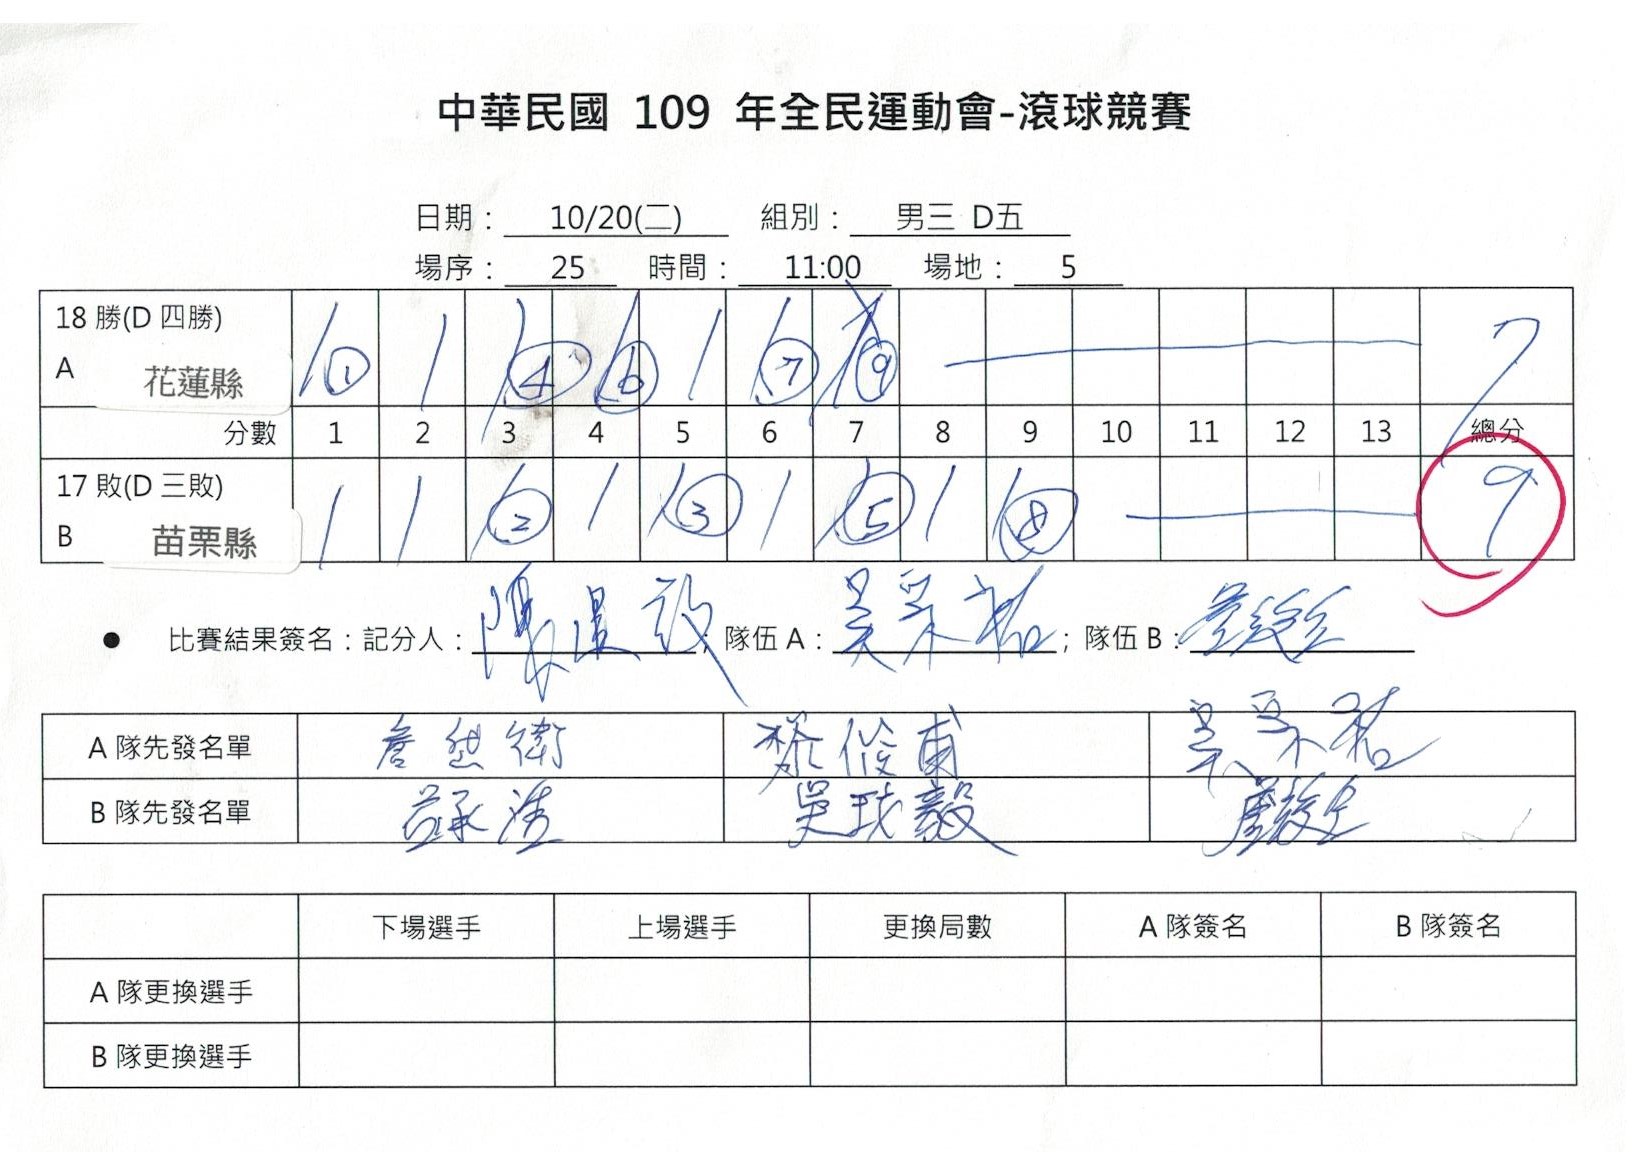 中華民國 109 年全民運動會-滾球競賽
日期： 10/20(二) 組別： 男三 D五
場序： 25 時間： 11:00 場地： 5
18 勝(D 四勝)
A 花蓮縣 / ① / / ④ / ⑥ / / ⑦ / ⑨ 7
分數 1 2 3 4 5 6 7 8 9 10 11 12 13 總分
17 敗(D 三敗)
B 苗栗縣 / / / ② / / ③ / / ⑤ / / ⑧ 9
● 比賽結果簽名：記分人： ；隊伍 A： 吳采祐 ；隊伍 B：
A 隊先發名單 俊甫 吳采祐
B 隊先發名單 吳 毅
下場選手 上場選手 更換局數 A 隊簽名 B 隊簽名
A 隊更換選手
B 隊更換選手